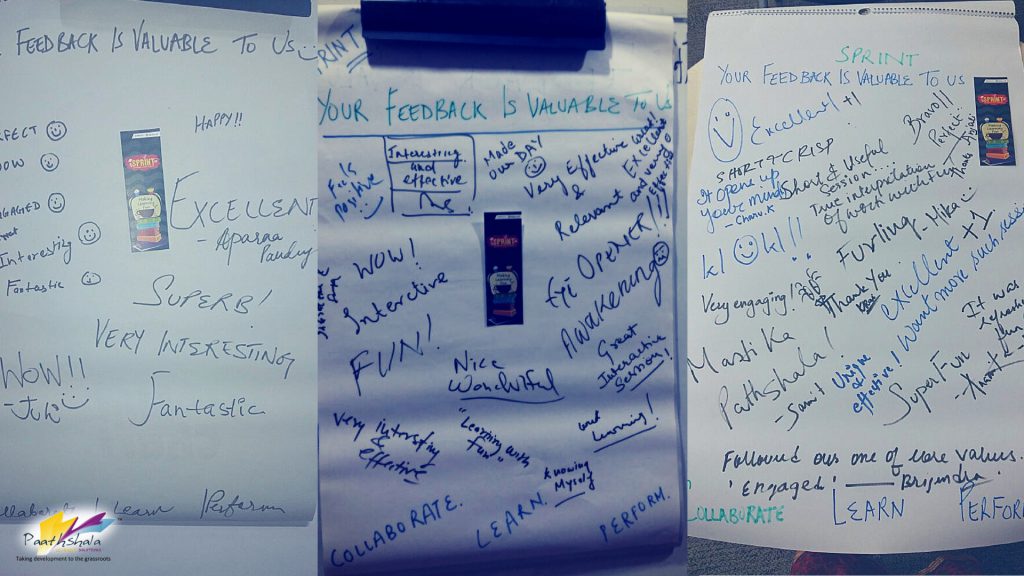 FEEDBACK IS VALUABLE TO US
HAPPY!!
WOW
SPRINT
Making
Learning
Fun
EXCELLENT
- Aparna
Pandey
Interesting
Fantastic
SUPERB!
VERY INTERESTING
WOW!!
Fantastic
Learn
Perform
PaathShala
SOLUTIONS
Taking development to the grassroots
YOUR FEEDBACK IS VALUABLE TO US
Interesting
and
effective
Made
our DAY
Very Effective
&
Relevant
Excellent
and very
Effective
Feels
positive
SPRINT
Making
Learning
Fun
WOW!
Interctive
FUN!
EYE OPENER!!!
AWAKENING
Great
Interactive
Session!
Nice
Wonderful
Very interesting
&
effective
"Learning with
fun"
and
Learning!
Knowing
Myself
COLLABORATE.
LEARN.
PERFORM.
SPRINT
YOUR FEEDBACK IS VALUABLE TO US
Excellent +1
Bravo!!
Perfect
Thanks
SPRINT
Making
Learning
Fun
SHORT & CRISP
It opens up
your mind
Short & Useful
Session!!
True interpretation
of work
Thank You
Very engaging!
excellent +1
Want more such
Masti Ka
Pathshala!
Unique
&
effective!
Super Fun
It was
Followed our one of core values.
'Engaged' — Brijendra
COLLABORATE
LEARN
PERFOR